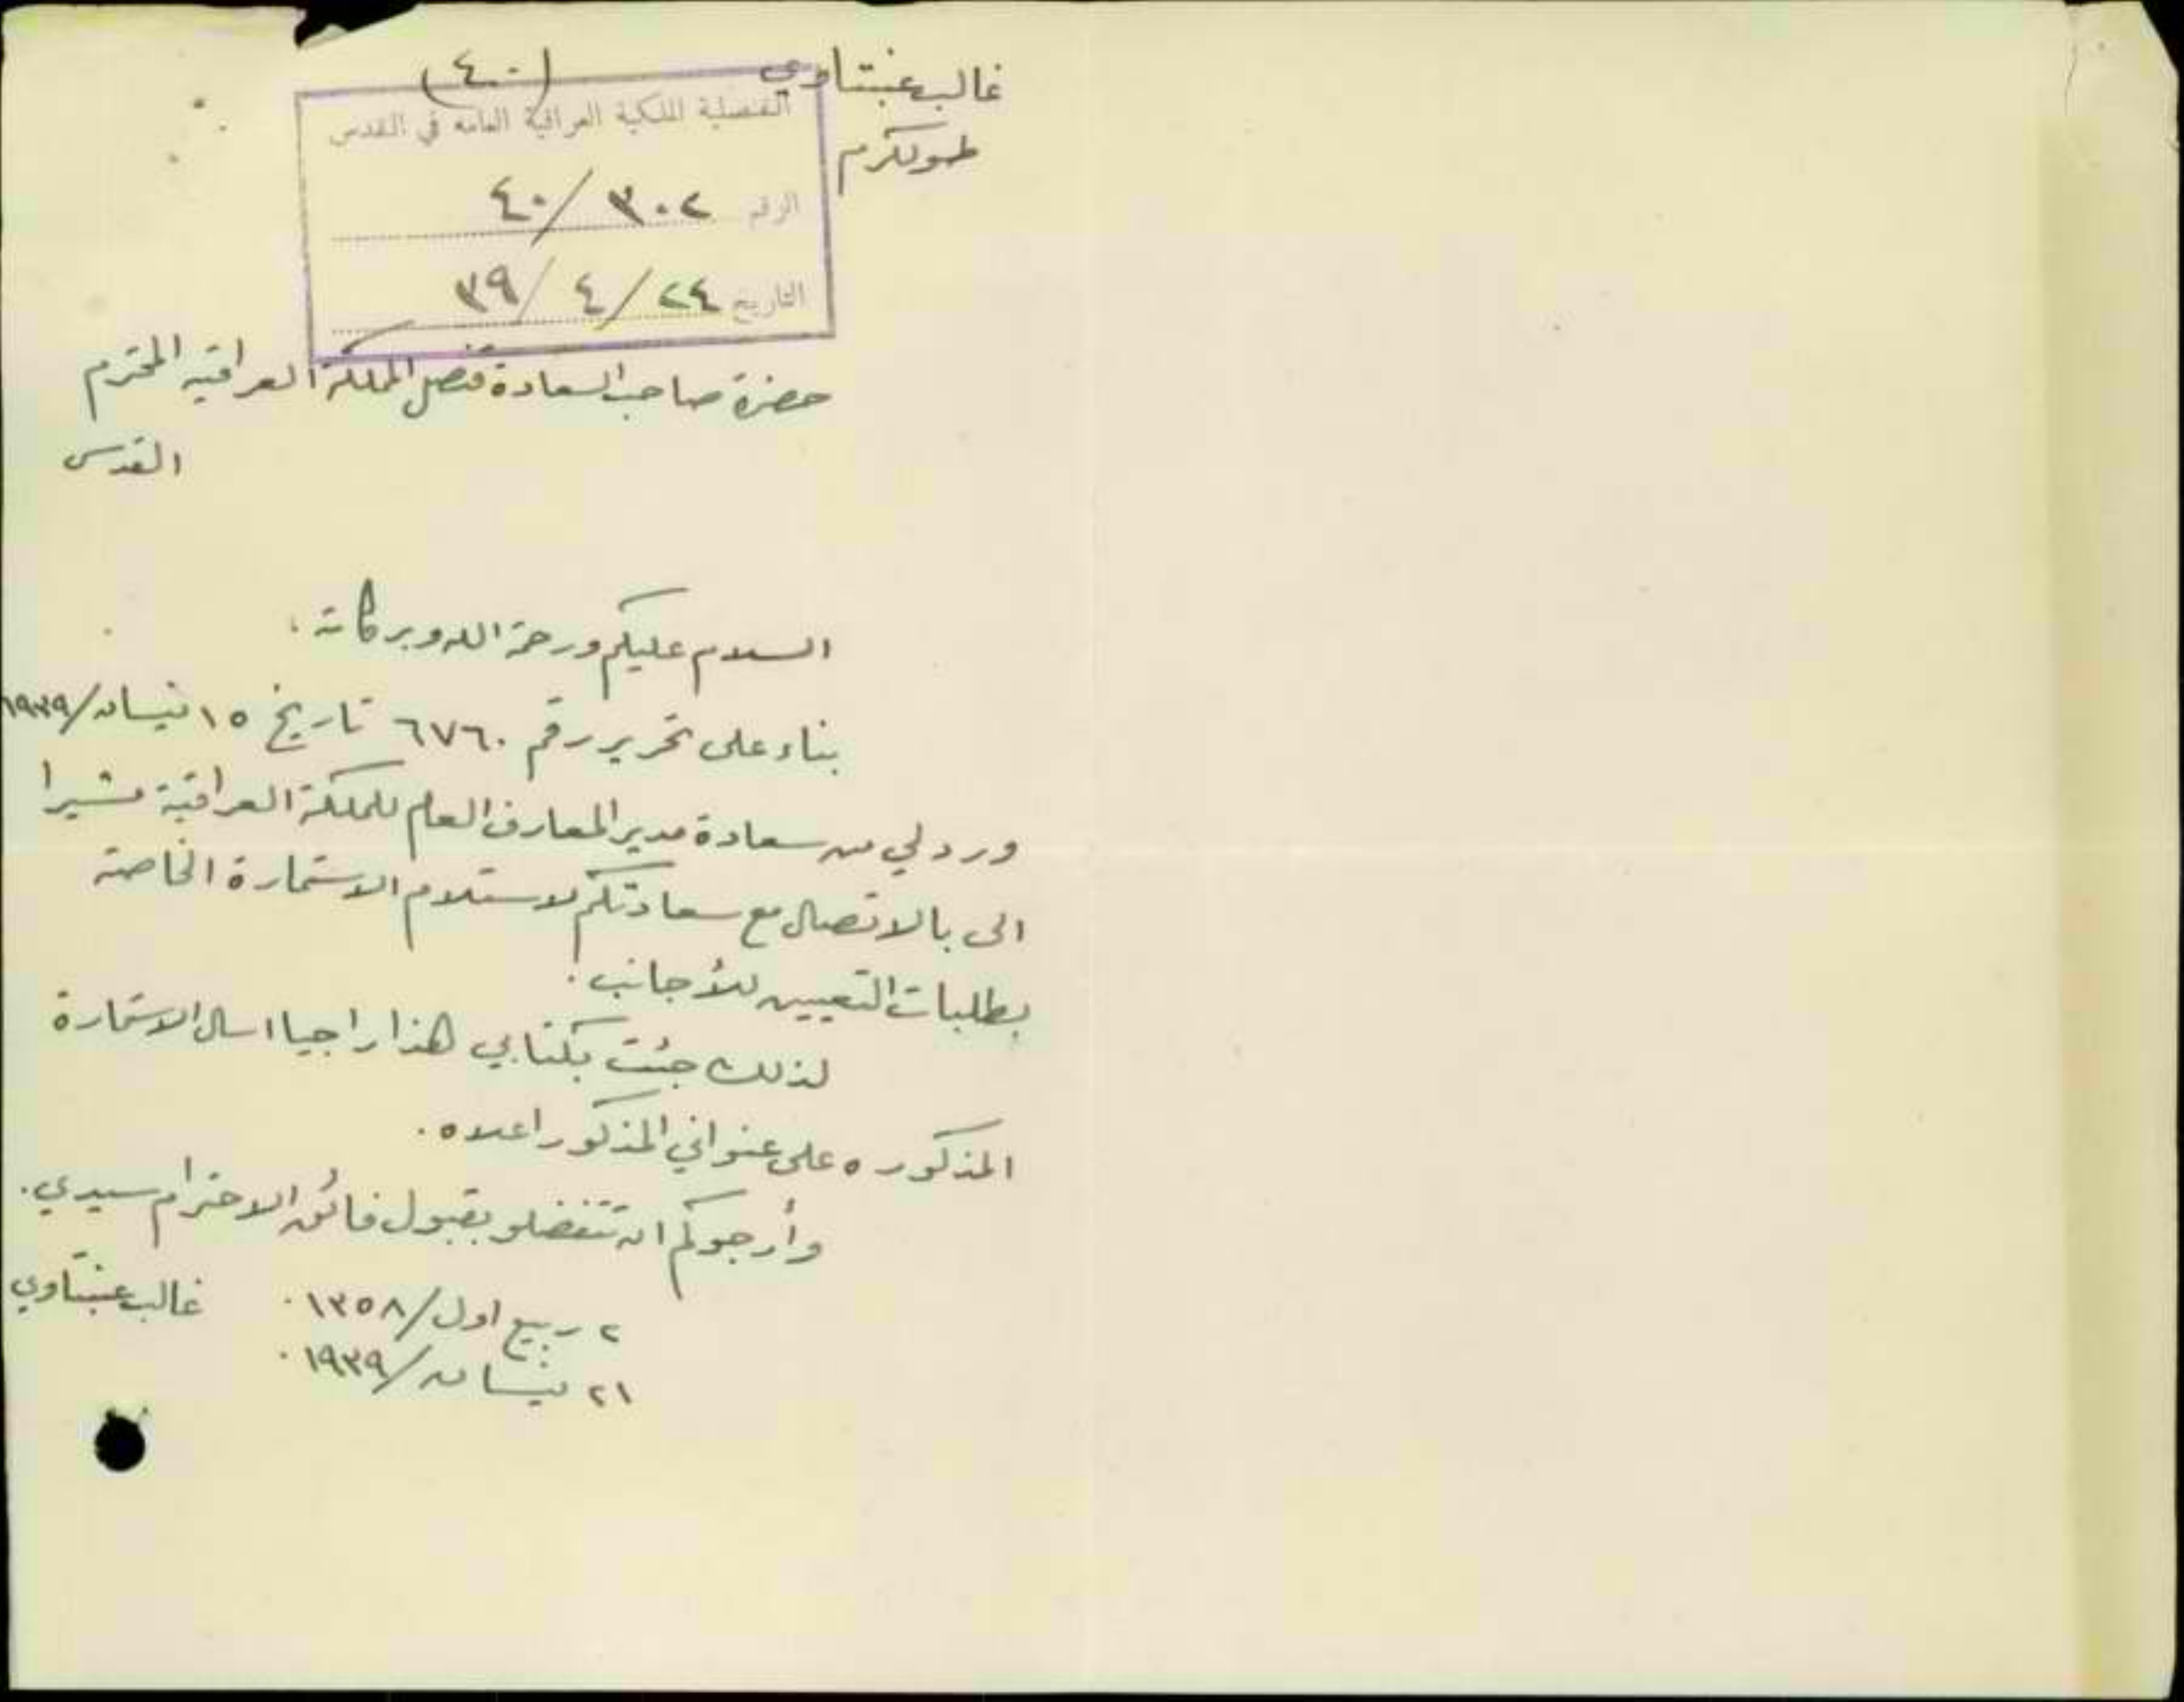 غالب عنبتاوي
طولكرم
(٤٠)
القنصلية الملكية العراقية العامة في القدس
الرقم ٣٠٢/٤٠
التاريخ ٢٤/٤/٣٩
حضرة صاحب السعادة قنصل المملكة العراقية المحترم
القدس
السلام عليكم ورحمة الله وبركاته.
بناء على تحرير رقم ٦٧٦٠ تاريخ ١٥ نيسان/١٩٣٩
ورد لي من سعادة مدير المعارف العام للمملكة العراقية مشيرا
الى بالاتصال مع سعادتكم لاستلام الاستمارة الخاصة
بطلبات التعيين للأجانب.
لذلك جئت بكتابي هذا راجيا اسال الاستمارة
المذكوره على عنواني المذكور اعلاه.
وأرجوكم ان تتفضلو بقبول فائق الاحترام سيدي.
٢ ربيع اول/١٣٥٨. غالب عنبتاوي
٢١ نيسان/١٩٣٩.